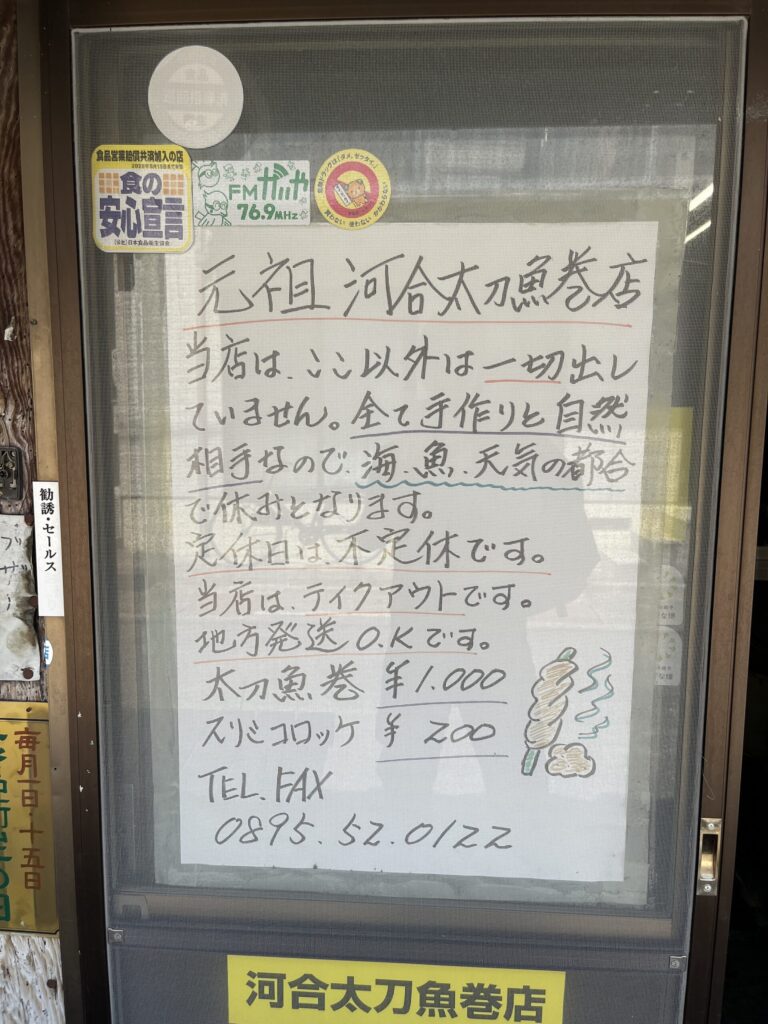 食品営業賠償共済加入の店
食の
安心宣言
(公社)日本食品衛生協会
FMがいや
76.9MHz
買わない 使わない かかわらない
元祖 河合太刀魚巻店
当店は、ここ以外は一切出し
ていません。全て手作りと自然
相手なので、海、魚、天気の都合
で休みとなります。
定休日は、不定休です。
当店は、テイクアウトです。
地方発送O.Kです。
太刀魚巻 ¥1.000
スリミコロッケ ¥ 200
TEL.FAX
0895.52.0122
河合太刀魚巻店
勧誘・セールス
ブザ
毎月一日・十五日